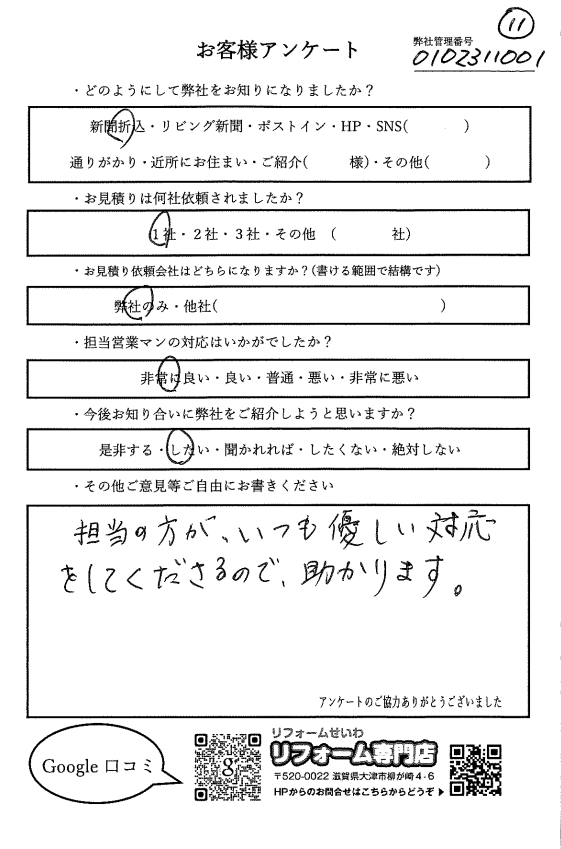 11
お客様アンケート
弊社管理番号
0102311001
・どのようにして弊社をお知りになりましたか？
新聞折込・リビング新聞・ポストイン・HP・SNS(　　　)
通りがかり・近所にお住まい・ご紹介(　　　様)・その他(　　　)
・お見積りは何社依頼されましたか？
1社・2社・3社・その他　(　　　社)
・お見積り依頼会社はどちらになりますか？(書ける範囲で結構です)
弊社のみ・他社(　　　)
・担当営業マンの対応はいかがでしたか？
非常に良い・良い・普通・悪い・非常に悪い
・今後お知り合いに弊社をご紹介しようと思いますか？
是非する・したい・聞かれれば・したくない・絶対しない
・その他ご意見等ご自由にお書きください
担当の方が、いつも優しい対応
をしてくださるので、助かります。
アンケートのご協力ありがとうございました
Google 口コミ
g
リフォームせいわ
リフォーム専門店
〒520-0022 滋賀県大津市柳が崎4-6
HPからのお問合せはこちらからどうぞ▶